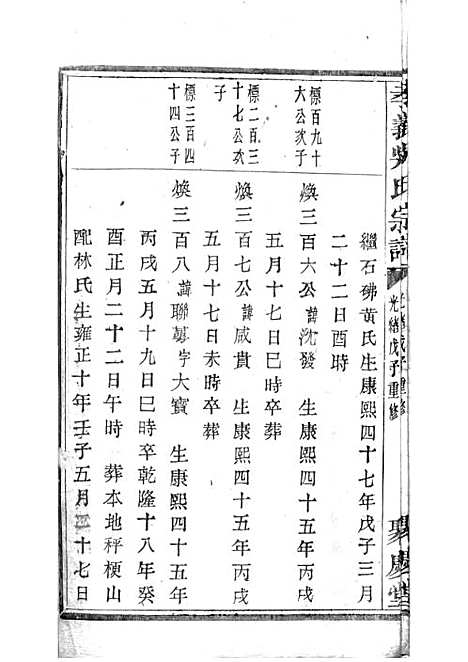 孝義吳氏宗譜
光緒戊子重修
聚慶堂
繼石硑黃氏生康熙四十七年戊子三月
二十二日酉時
標百九十
六公次子
煥三百六公諱沈發 生康熙四十五年丙戌
五月十七日巳時卒葬
標二百三
十七公次
子
煥三百七公諱咸貴 生康熙四十五年丙戌
五月十七日未時卒葬
標三百四
十四公子
煥三百八諱聯募字大寶 生康熙四十五年
丙戌五月十九日巳時卒乾隆十八年癸
酉正月二十二日午時 葬本地秤梗山
配林氏生雍正十年壬子五月二十七日